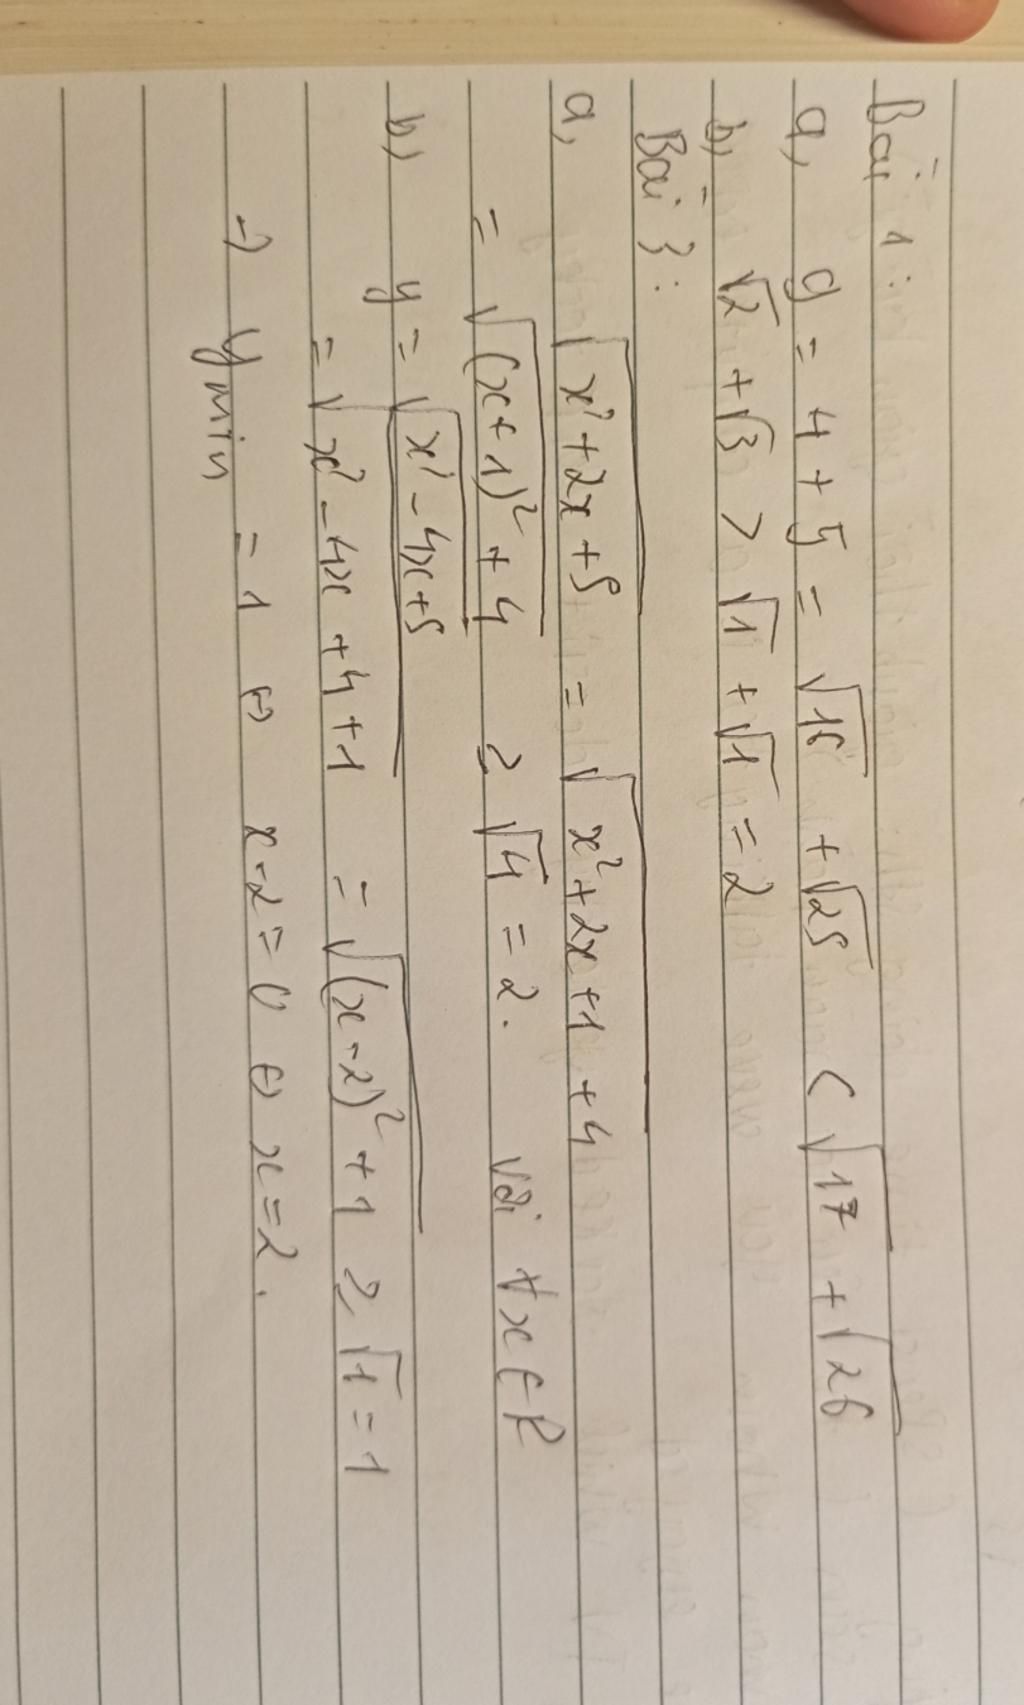 Bài 1:
a, 9 = 4 + 5 = √16 + √25 < √17 + √26
b, √2 + √3 > √1 + √1 = 2
Bài 3:
a, √x²+2x+5 = √x²+2x+1+4
= √(x+1)²+4 ≥ √4 = 2. Với ∀x∈R
b) y = √x²-4x+5
= √x²-4x+4+1 = √(x-2)²+1 ≥ √1 = 1
→ y min = 1 ⇔ x-2=0 ⇔ x=2.